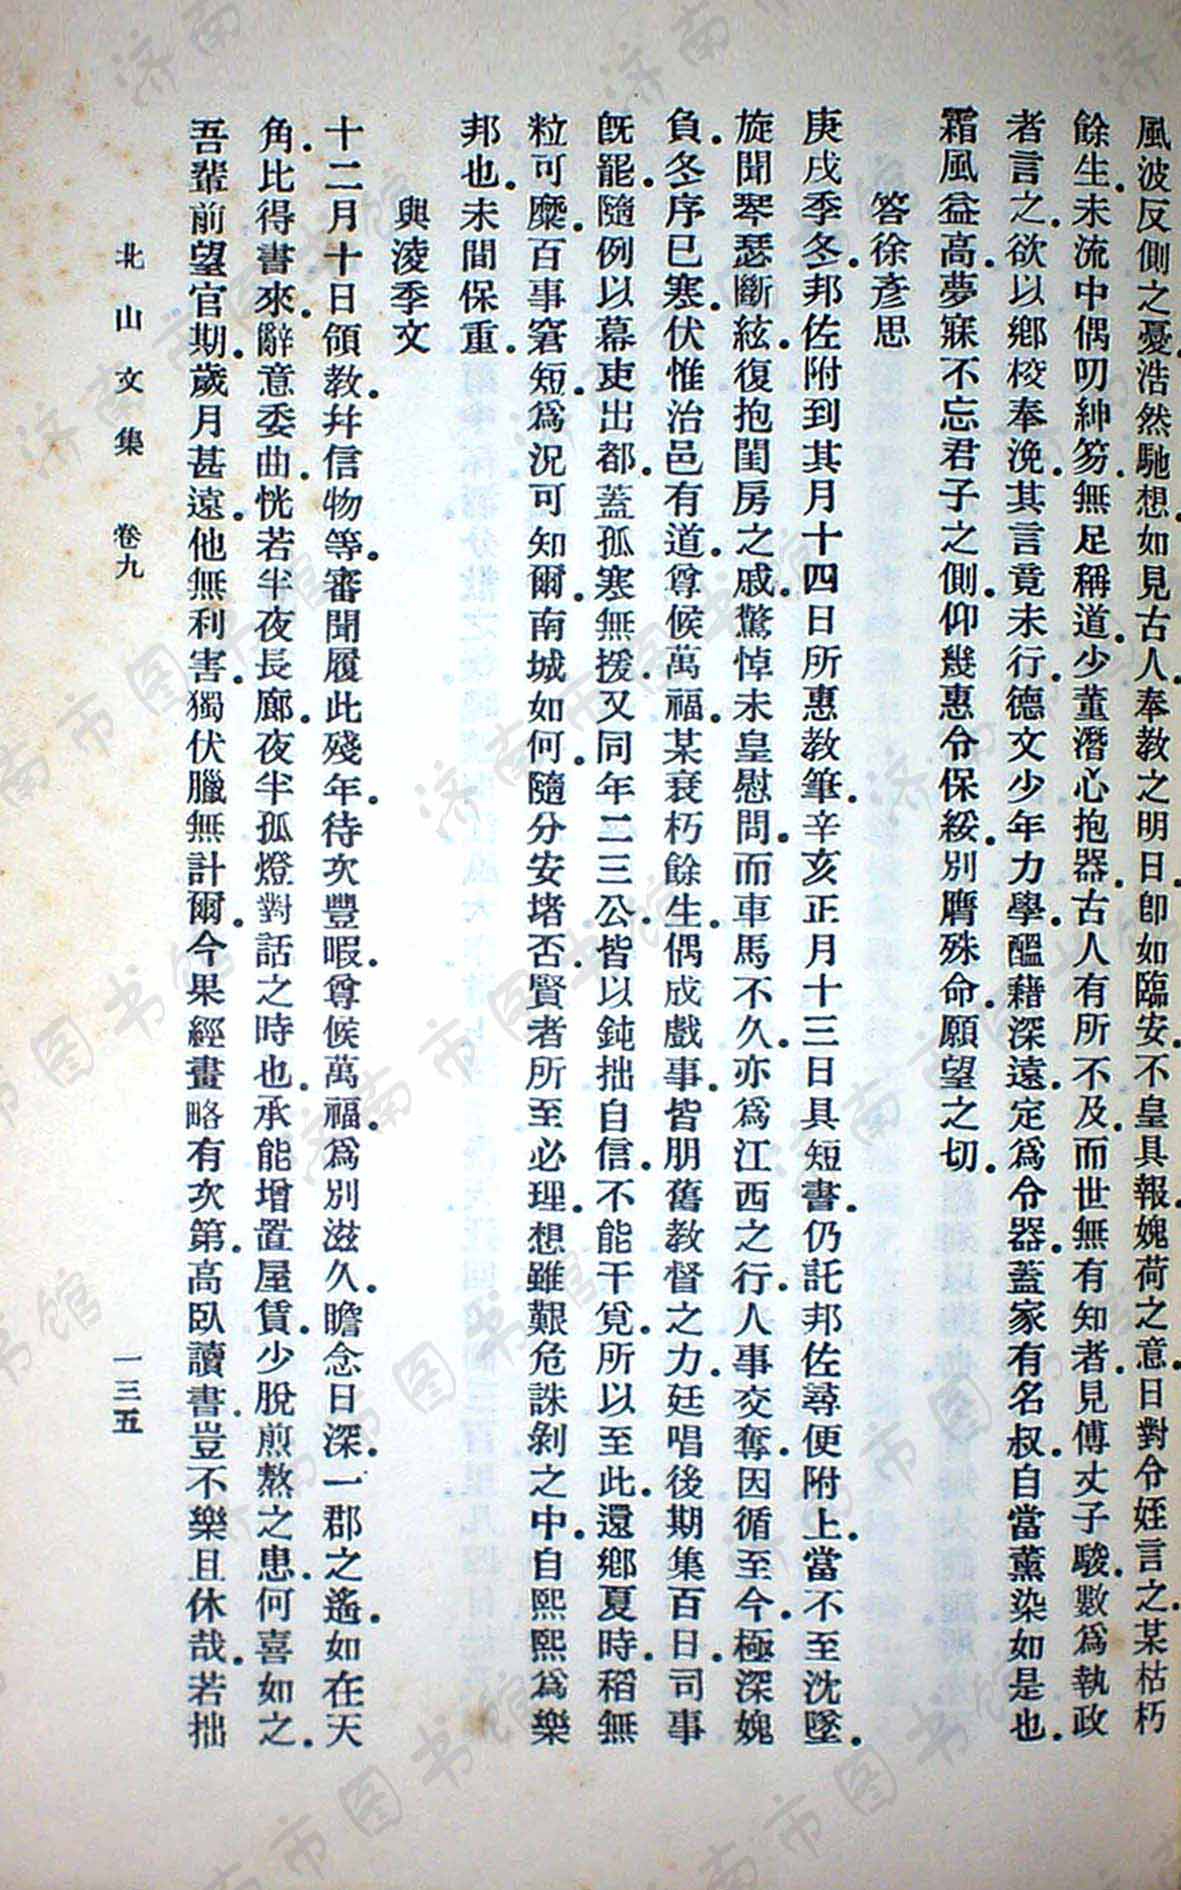 風波反側之憂浩然馳想如見古人奉教之明日卽如臨安不皇具報媿荷之意日對令姪言之某枯朽
餘生未流中偶叨紳笏無足稱道少董潛心抱器古人有所不及而世無有知者見傅丈子駿數爲執政
者言之欲以鄉校奉浼其言竟未行德文少年力學醞藉深遠定爲令器蓋家有名叔自當薰染如是也
霜風益高夢寐不忘君子之側仰幾惠令保綏別膺殊命願望之切
答徐彥思
庚戌季冬邦佐附到其月十四日所惠教筆辛亥正月十三日具短書仍託邦佐尋便附上當不至沈墜
旋聞琴瑟斷絃復抱閨房之戚驚悼未皇慰問而車馬不久亦爲江西之行人事交奪因循至今極深媿
負冬序已寒伏惟治邑有道尊候萬福某衰朽餘生偶成戲事皆朋舊教督之力廷唱後期集百日司事
旣罷隨例以幕吏出都蓋孤寒無援又同年二三公皆以鈍拙自信不能干覓所以至此還鄉夏時稻無
粒可糜百事窘短爲況可知爾南城如何隨分安堵否賢者所至必理想雖艱危誅剝之中自熙熙爲樂
邦也未間保重
與淩季文
十二月十日領教幷信物等審聞履此殘年待次豐暇尊候萬福爲別滋久瞻念日深一郡之遙如在天
角比得書來辭意委曲恍若半夜長廊夜半孤燈對話之時也承能增置屋賃少脫煎熬之患何喜如之
吾輩前望官期歲月甚遠他無利害獨伏臘無計爾今果經畫略有次第高臥讀書豈不樂且休哉若拙
北山文集 卷九 一三五